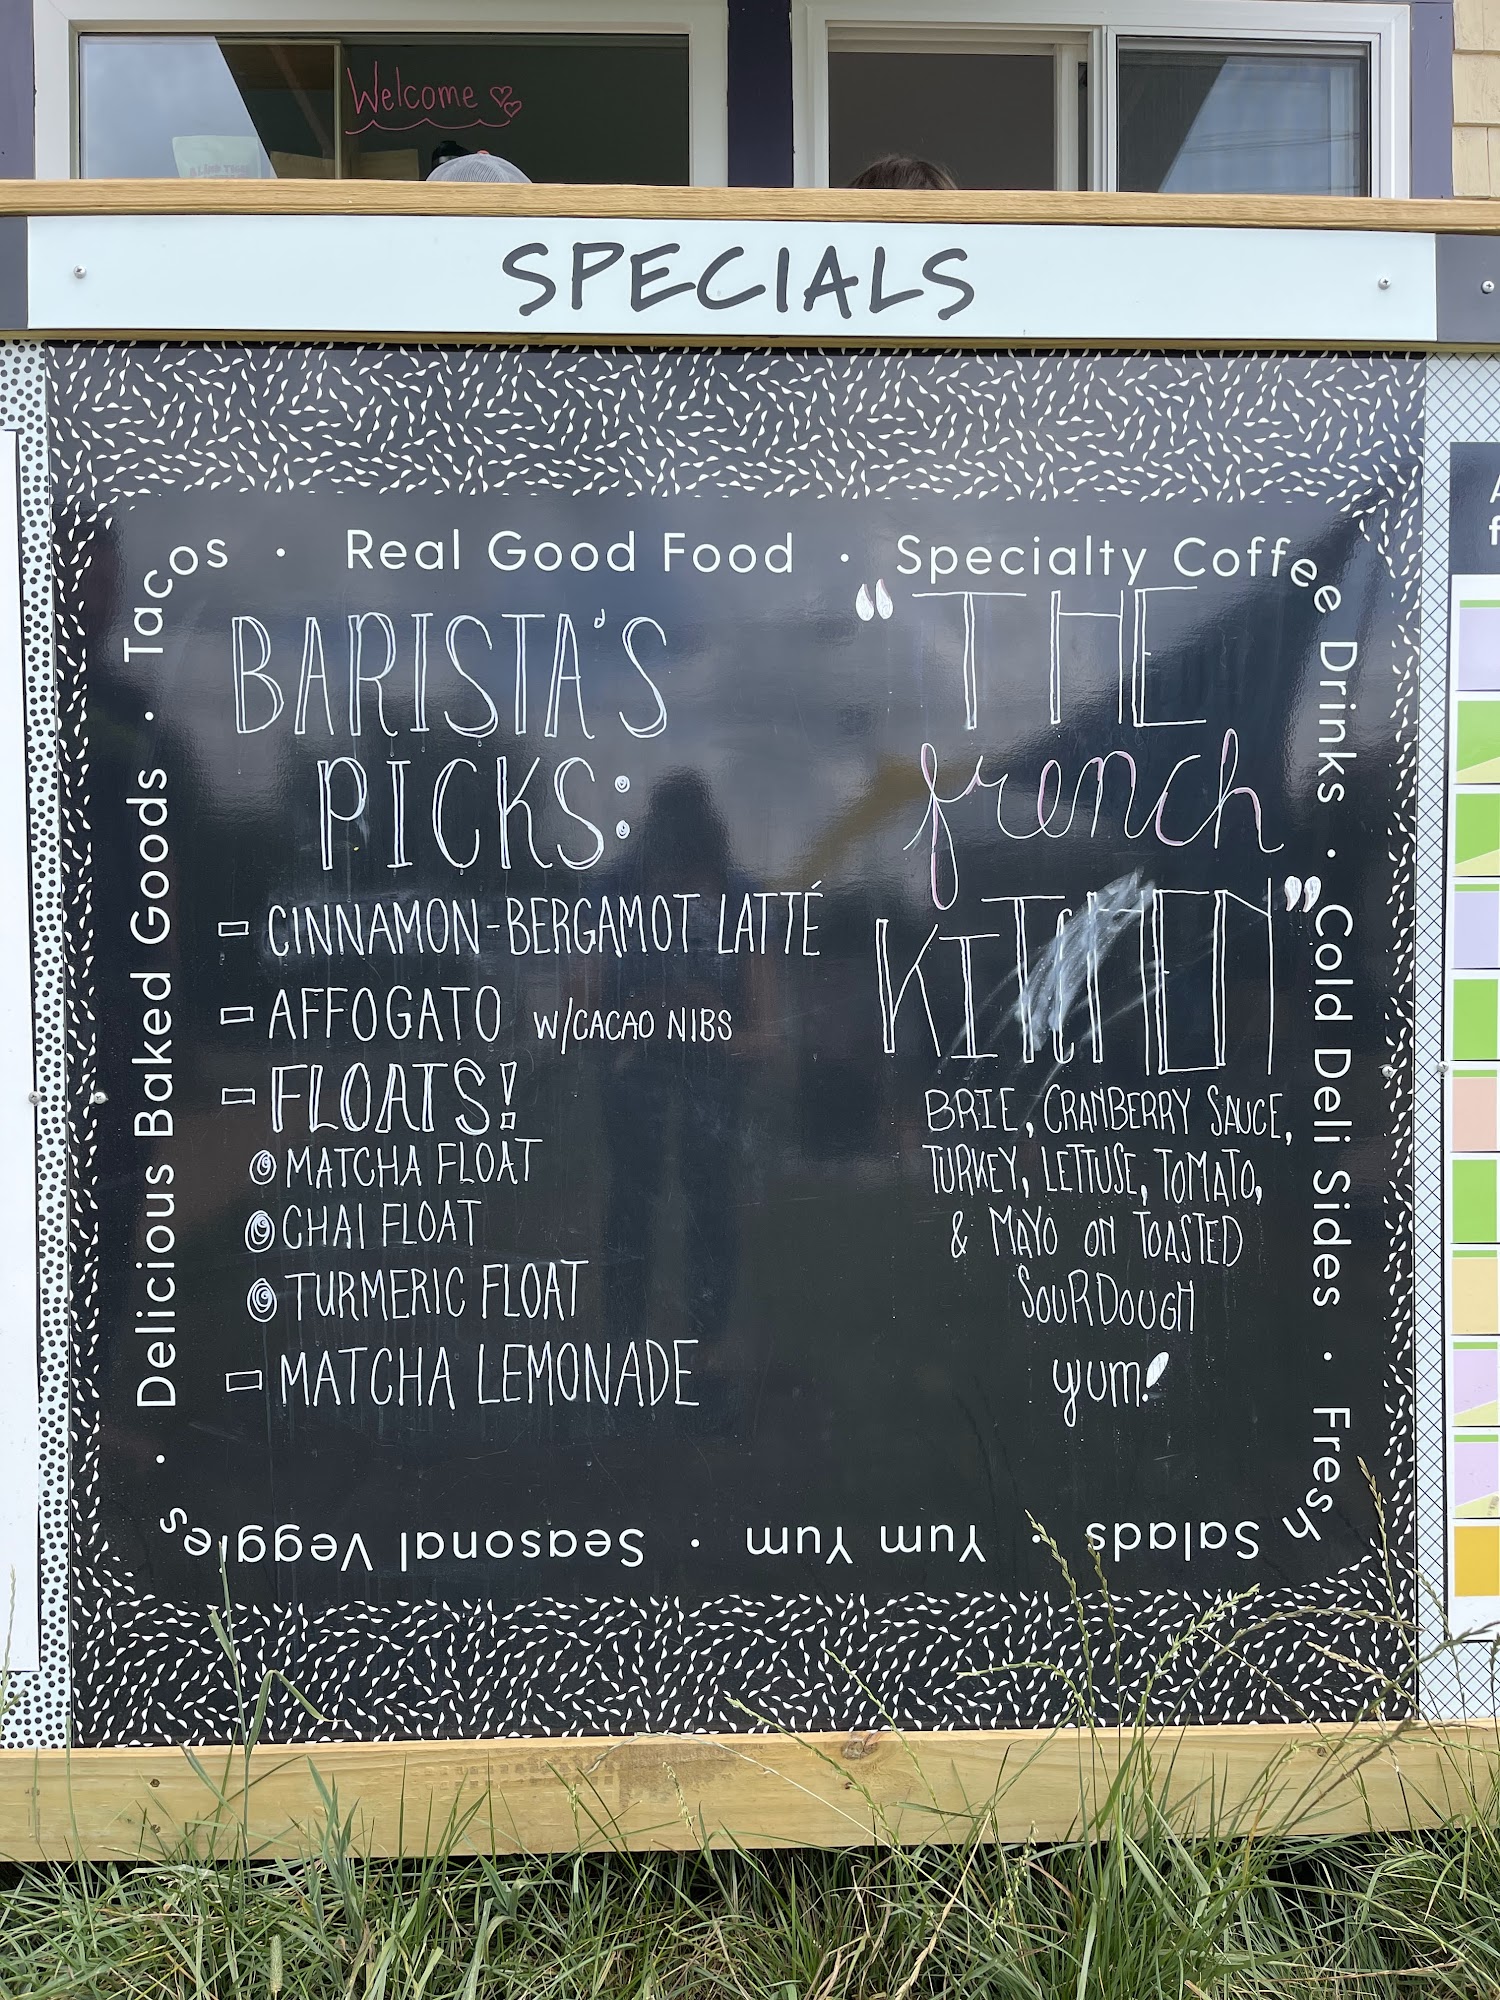 Welcome
SPECIALS
Tacos · Real Good Food · Specialty Coffee Drinks · Cold Deli Sides · Fresh Salads · Yum Yum · Seasonal Veggies · Delicious Baked Goods ·
BARISTA'S
PICKS:
CINNAMON-BERGAMOT LATTÉ
AFFOGATO W/CACAO NIBS
FLOATS!
MATCHA FLOAT
CHAI FLOAT
TURMERIC FLOAT
MATCHA LEMONADE
"THE
french
KITCHEN"
BRIE, CRANBERRY SAUCE,
TURKEY, LETTUSE, TOMATO,
& MAYO ON TOASTED
SOURDOUGH
yum!